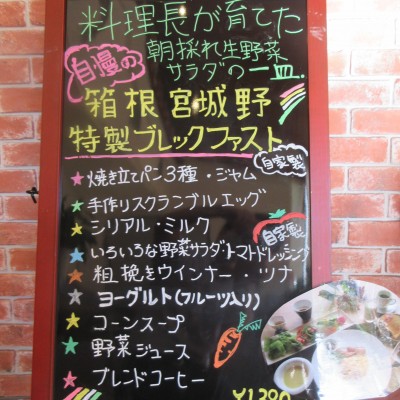 料理長が育てた
自慢の
朝採れ生野菜
サラダの一皿.
箱根宮城野
特製ブレックファスト
自家製
★焼き立てパン3種・ジャム
★手作リスクランブルエッグ
★シリアル・ミルク
自家製
★いろいろな野菜サラダ・トマトドレッシング
★粗挽きウインナー・ツナ
★ヨーグルト(フルーツ入り)
★コーンスープ
★野菜ジュース
★ブレンドコーヒー
¥1,390